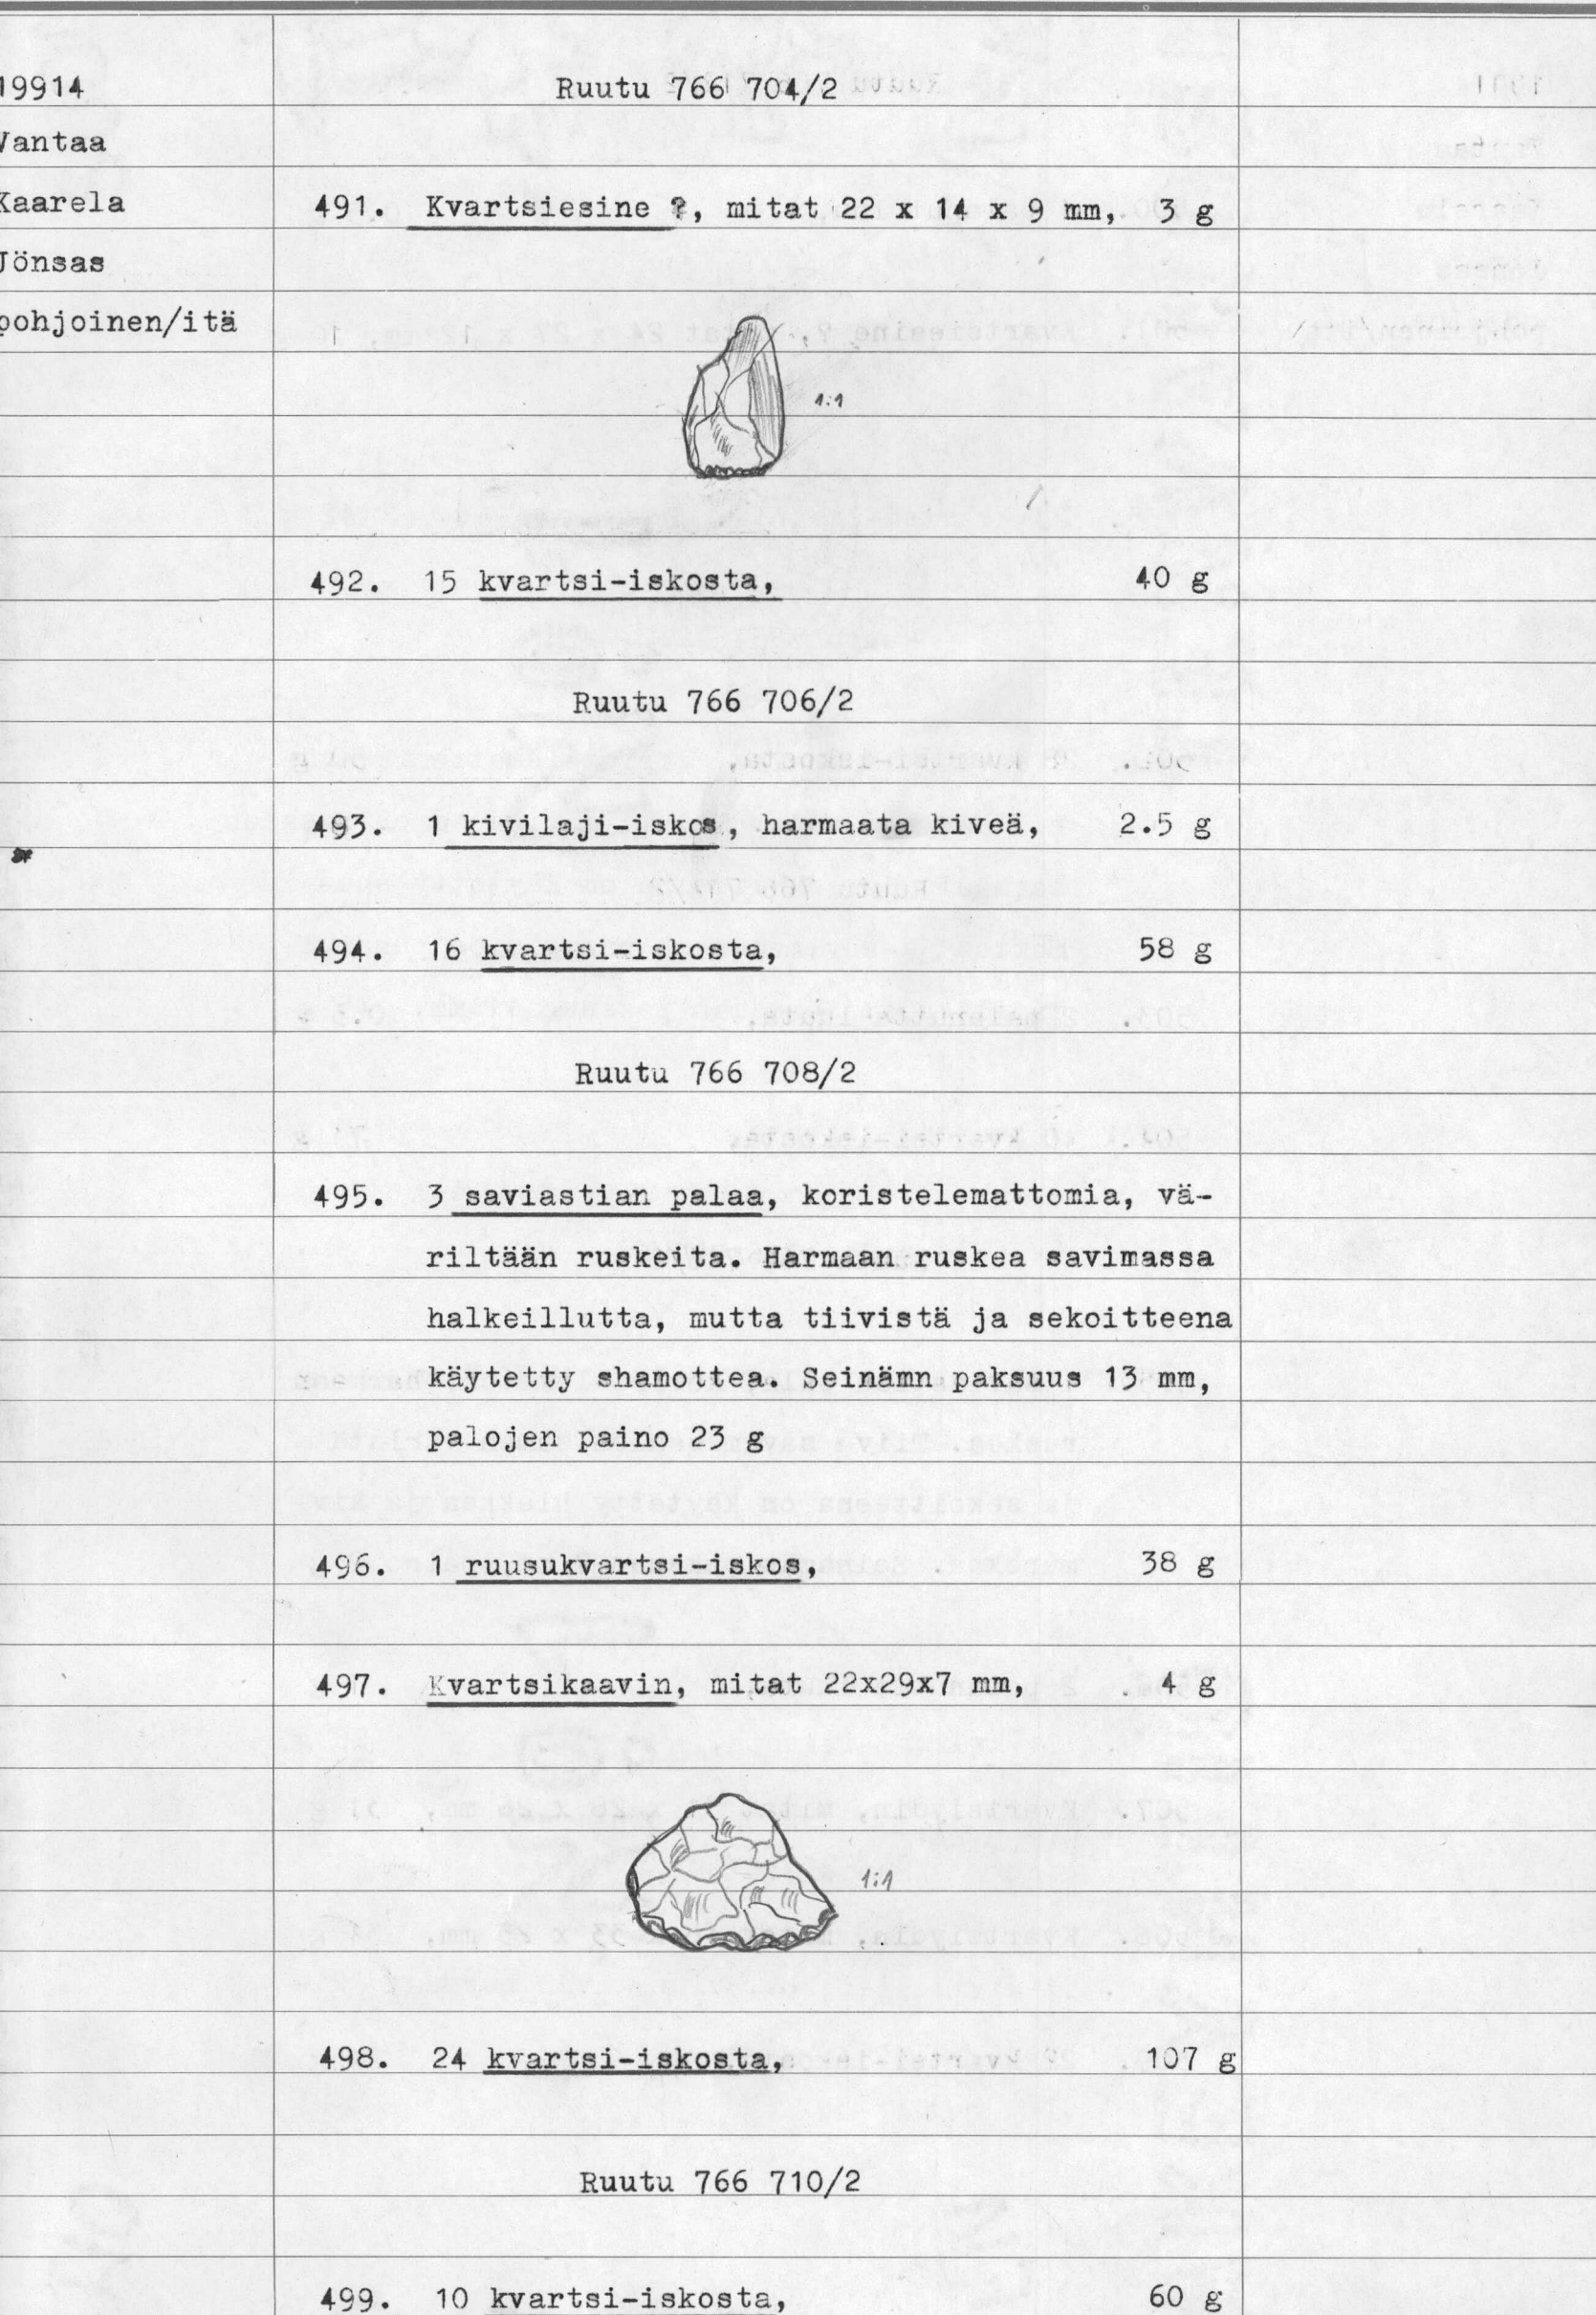 19914
Ruutu 766 704/2
Vantaa
Kaarela
491. Kvartsiesine ?, mitat 22 x 14 x 9 mm, 3 g
Jönsas
pohjoinen/itä
1:1
492. 15 kvartsi-iskosta, 40 g
Ruutu 766 706/2
493. 1 kivilaji-iskos, harmaata kiveä, 2.5 g
494. 16 kvartsi-iskosta, 58 g
Ruutu 766 708/2
495. 3 saviastian palaa, koristelemattomia, vä-
riltään ruskeita. Harmaan ruskea savimassa
halkeillutta, mutta tiivistä ja sekoitteena
käytetty shamottea. Seinämn paksuus 13 mm,
palojen paino 23 g
496. 1 ruusukvartsi-iskos, 38 g
497. Kvartsikaavin, mitat 22x29x7 mm, 4 g
1:1
498. 24 kvartsi-iskosta, 107 g
Ruutu 766 710/2
499. 10 kvartsi-iskosta, 60 g